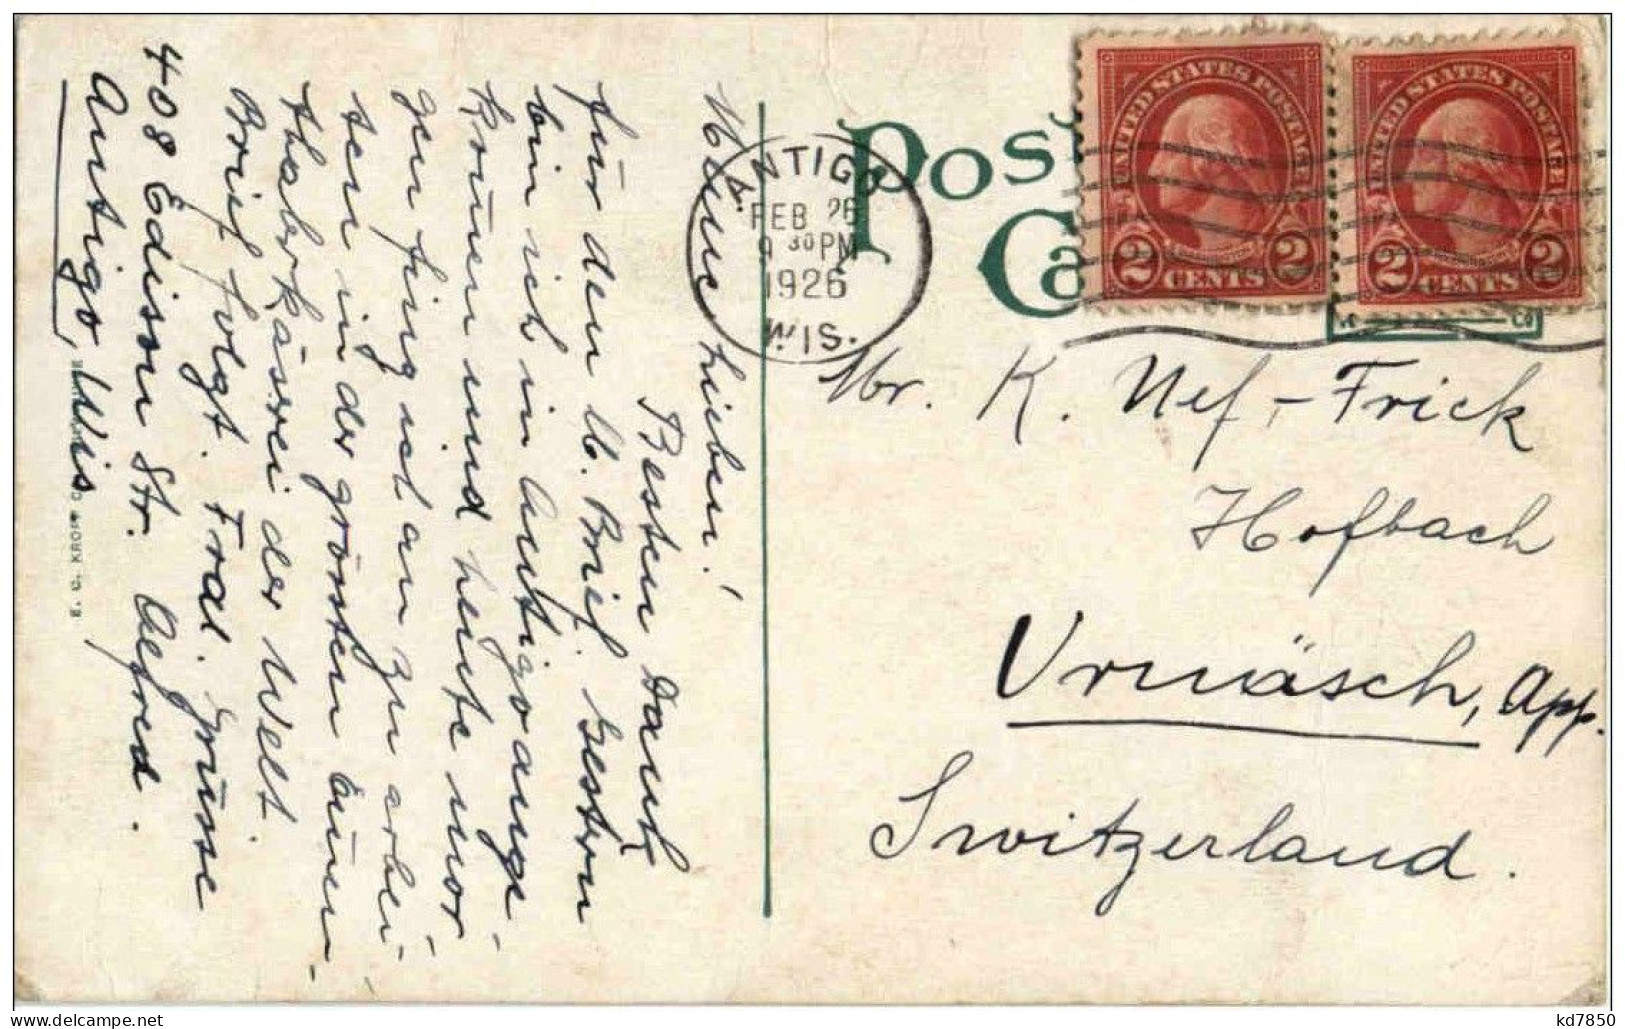 Meine Lieben!
Besten Dank
für den lb. Brief. Gestern
bin ich in Antigo ange-
kommen und heute mor-
gen fing ich an zu arbei-
ten in der grössten Emmen-
thalerkäserei der Welt.
Brief folgt. Frdl. Grüsse
408 Edison Str. Alfred.
Antigo, Wis
E. C. KROPP CO
Post
Ca
ANTIGO
FEB 26
9 30 PM
1926
WIS.
UNITED STATES POSTAGE
2 CENTS 2
UNITED STATES POSTAGE
2 CENTS 2
Mr. K. Nef-Frick
Hofbach
Urnäsch, App.
Switzerland.
delcampe.net
kd7850